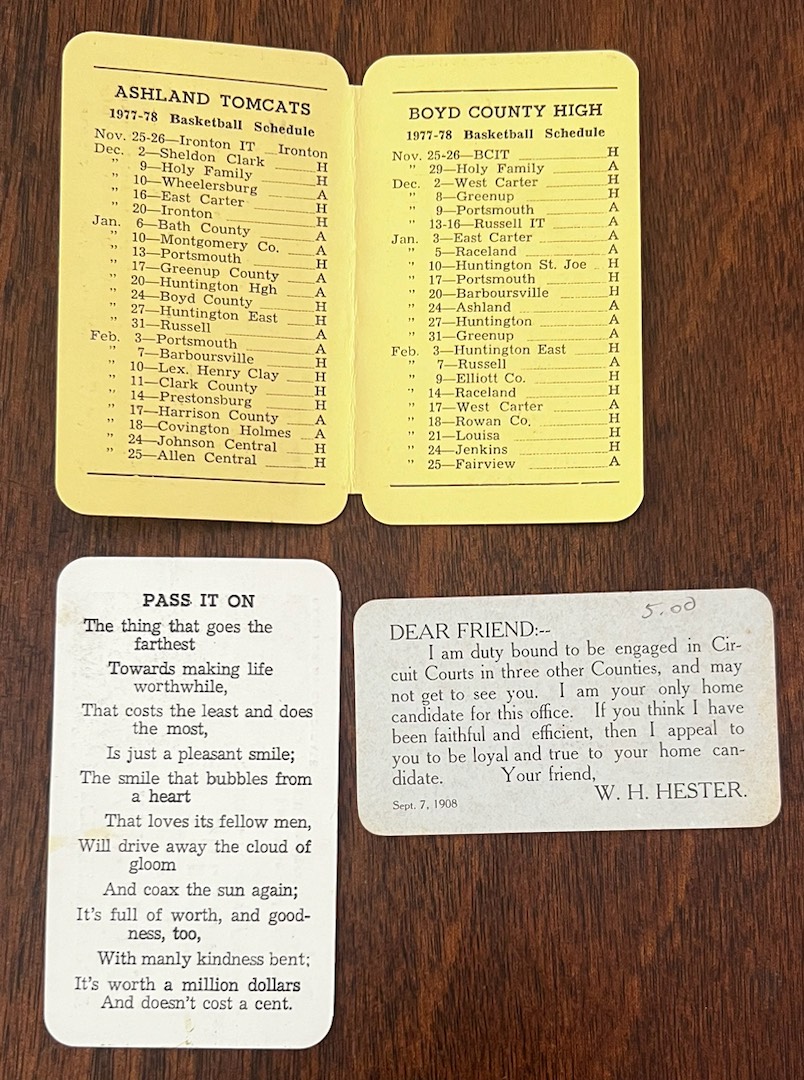 ASHLAND TOMCATS
1977-78 Basketball Schedule
Nov. 25-26—Ironton IT Ironton
Dec. 2—Sheldon Clark H
" 9—Holy Family H
" 10—Wheelersburg A
" 16—East Carter H
" 20—Ironton H
Jan. 6—Bath County A
" 10—Montgomery Co. A
" 13—Portsmouth H
" 17—Greenup County A
" 20—Huntington Hgh A
" 24—Boyd County H
" 27—Huntington East H
" 31—Russell A
Feb. 3—Portsmouth A
" 7—Barboursville H
" 10—Lex. Henry Clay H
" 11—Clark County H
" 14—Prestonsburg H
" 17—Harrison County A
" 18—Covington Holmes A
" 24—Johnson Central H
" 25—Allen Central H
BOYD COUNTY HIGH
1977-78 Basketball Schedule
Nov. 25-26—BCIT H
" 29—Holy Family A
Dec. 2—West Carter H
" 8—Greenup H
" 9—Portsmouth A
" 13-16—Russell IT A
Jan. 3—East Carter A
" 5—Raceland A
" 10—Huntington St. Joe H
" 17—Portsmouth H
" 20—Barboursville H
" 24—Ashland A
" 27—Huntington A
" 31—Greenup A
Feb. 3—Huntington East H
" 7—Russell A
" 9—Elliott Co. H
" 14—Raceland H
" 17—West Carter A
" 18—Rowan Co. H
" 21—Louisa H
" 24—Jenkins H
" 25—Fairview A
PASS IT ON
The thing that goes the
farthest
Towards making life
worthwhile,
That costs the least and does
the most,
Is just a pleasant smile;
The smile that bubbles from
a heart
That loves its fellow men,
Will drive away the cloud of
gloom
And coax the sun again;
It's full of worth, and good-
ness, too,
With manly kindness bent;
It's worth a million dollars
And doesn't cost a cent.
5.00
DEAR FRIEND:--
I am duty bound to be engaged in Cir-
cuit Courts in three other Counties, and may
not get to see you. I am your only home
candidate for this office. If you think I have
been faithful and efficient, then I appeal to
you to be loyal and true to your home can-
didate. Your friend,
W. H. HESTER.
Sept. 7, 1908